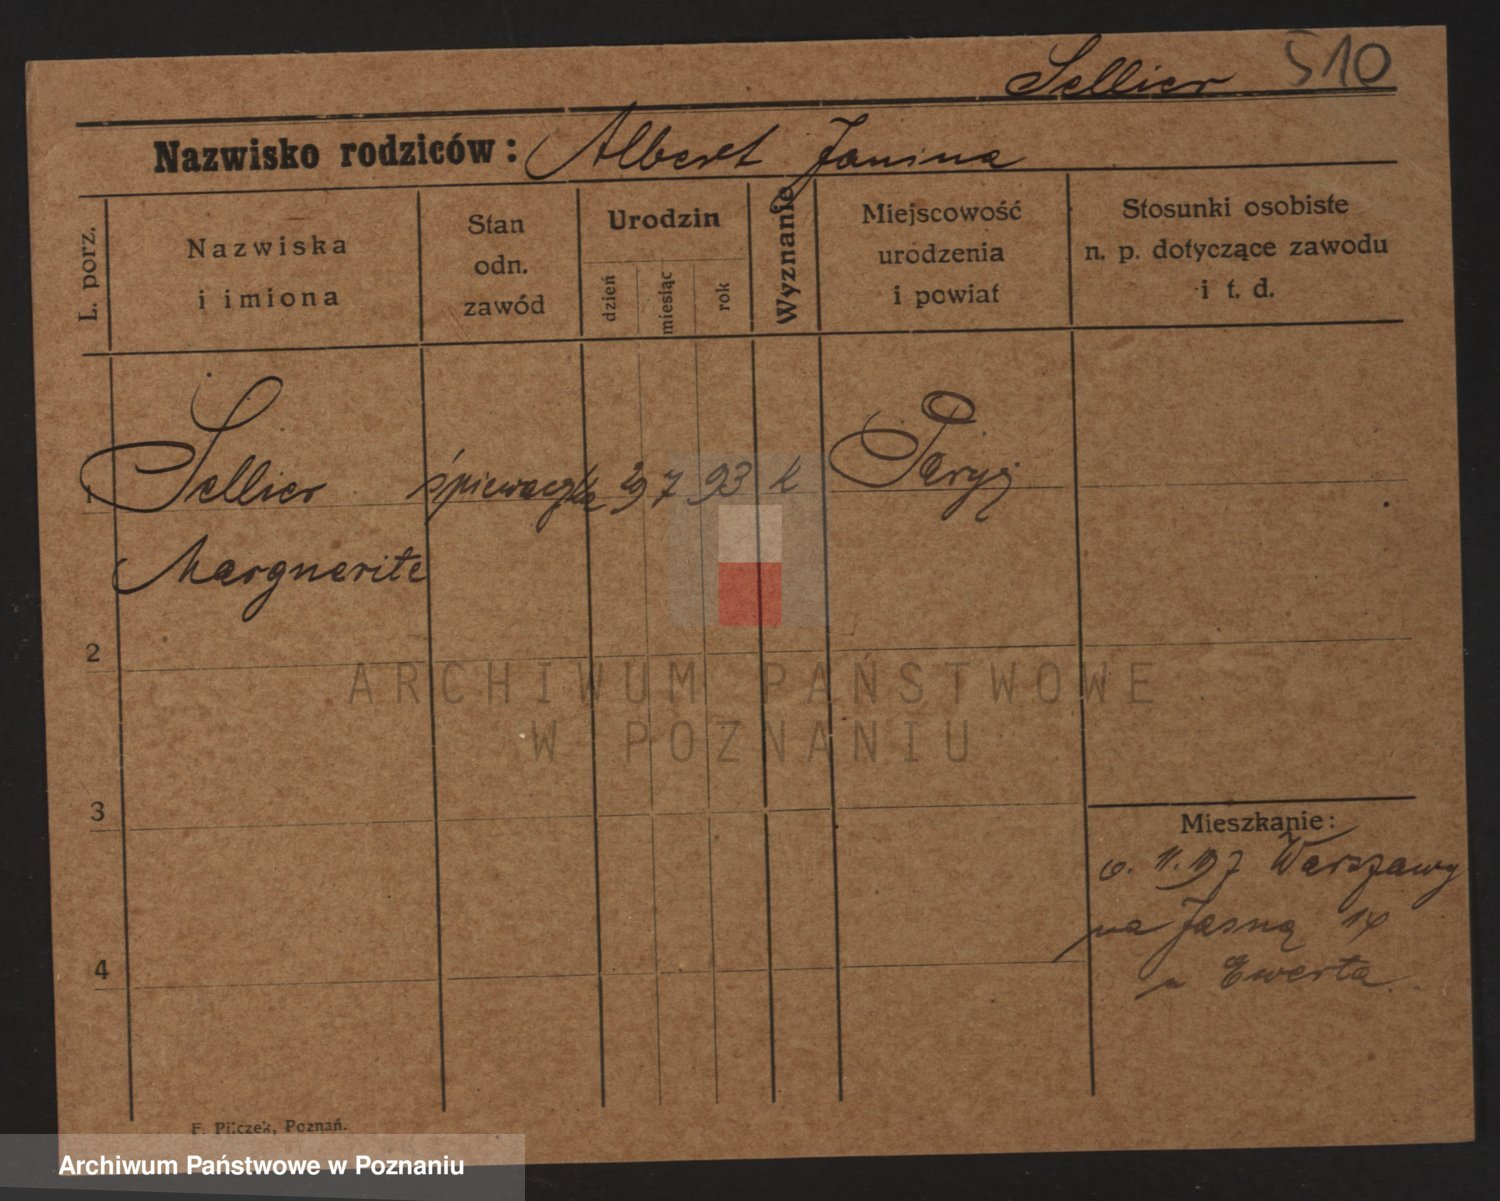 Sellier 510
Nazwisko rodziców: Albert Janina
L. porz.
Nazwiska
i imiona
Stan
odn.
zawód
Urodzin
dzień
miesiąc
rok
Wyznanie
Miejscowość
urodzenia
i powiat
Stosunki osobiste
n. p. dotyczące zawodu
i t. d.
1 Sellier śpiewaczka 29 7 93 k Paryż
Marguerite
2
ARCHIWUM PAŃSTWOWE
W POZNANIU
3
Mieszkanie:
Warszawy
na Jasną 14
u Ewerta
4
F. Pilczek, Poznań.
Archiwum Państwowe w Poznaniu